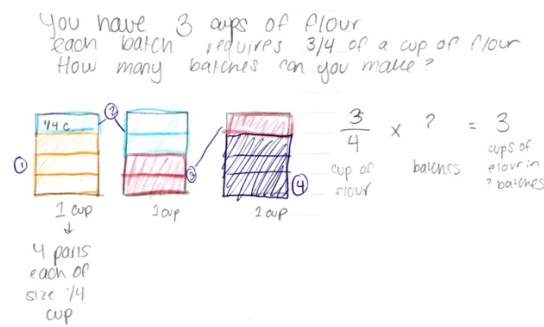 You have 3 cups of flour
each batch requires 3/4 of a cup of flour
How many batches can you make?
1/4 c.
①
②
③
④
1 cup
1 cup
1 cup
↓
4 parts
each of
size 1/4
cup
3/4 × ? = 3
cup of
flour
batches
cups of
flour in
? batches